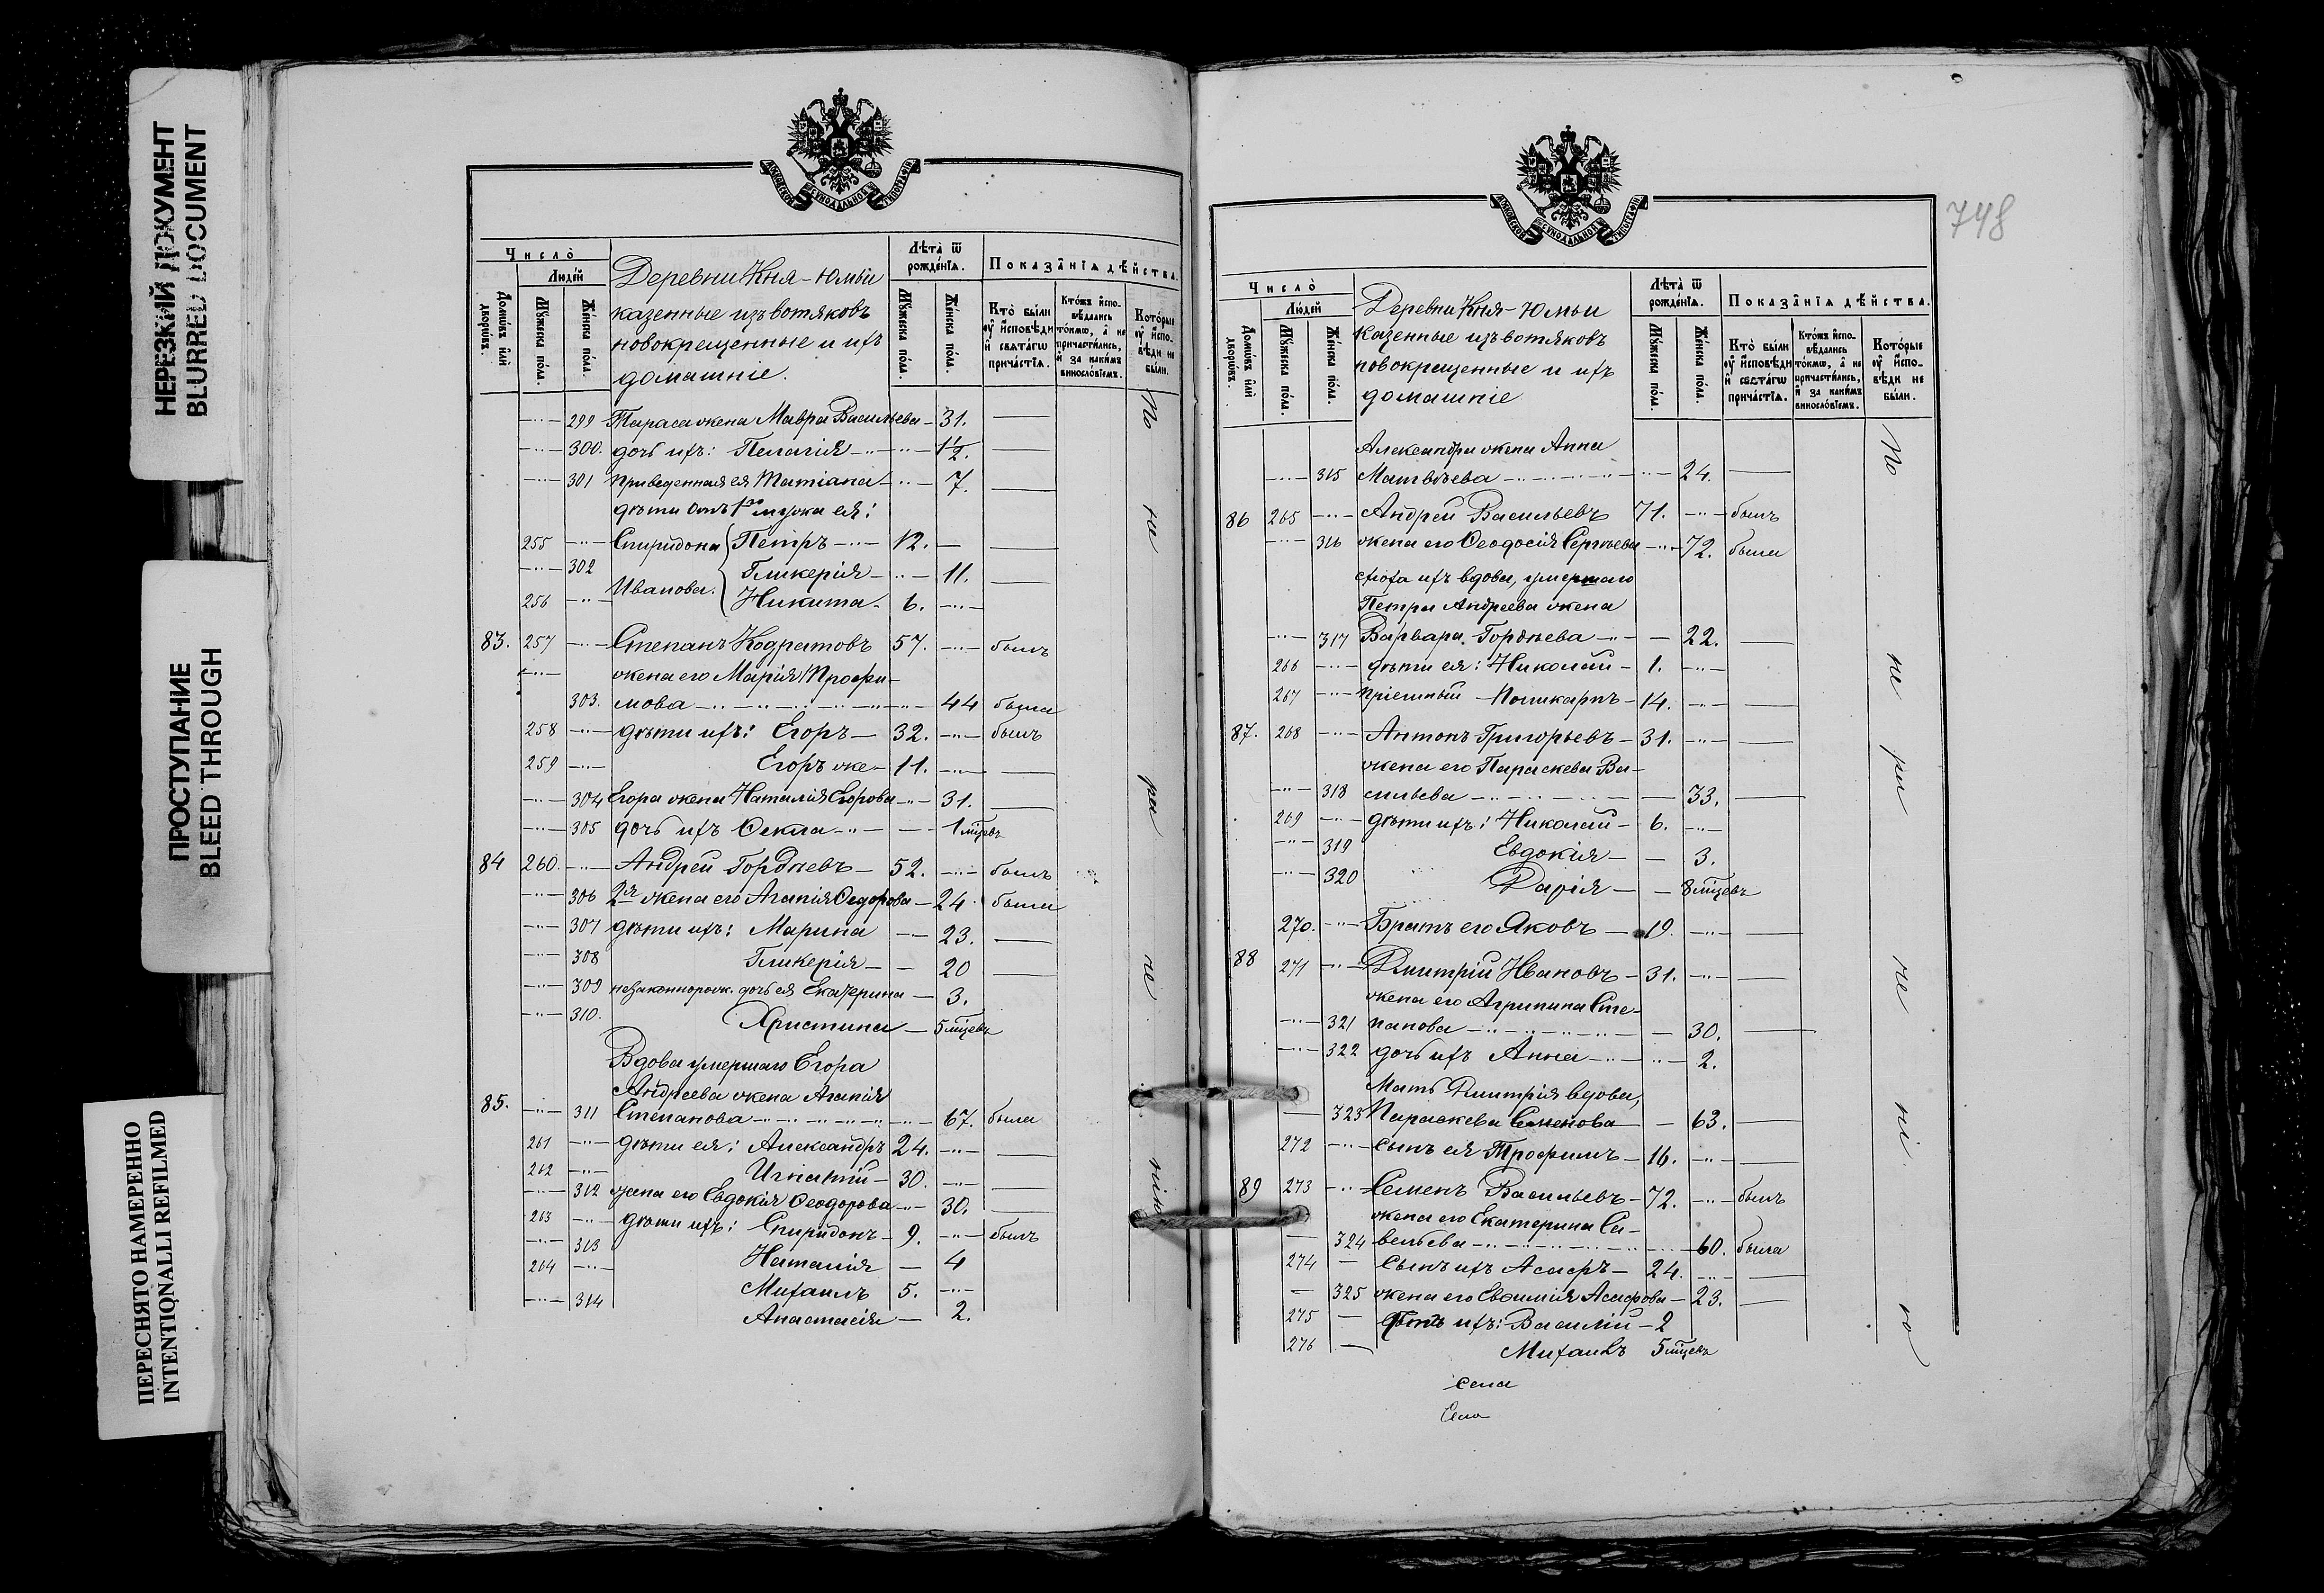 НЕРЕЗКИЙ ДОКУМЕНТ
BLURRED DOCUMENT
ПРОСТУПАНИЕ
BLEED THROUGH
ПЕРЕСНЯТО НАМЕРЕННО
INTENTIONALLI REFILMED
МОСКОВСКОЙ СѴНОДАЛЬНОЙ ТИПОГРАФІИ
Число̀
Люде́й
Домѡ́въ и҆лѝ дворѡ́въ.
Мꙋ́жеска по́ла.
Же́нска по́ла.
Деревни Кня-Юмьи
казенные изъ вотяковъ
новокрещенные и ихъ
домашніе.
Лѣ́та ѿ рожде́нїѧ.
Мꙋ́жеска по́ла.
Же́нска по́ла.
Показа̑нїѧ дѣ́йства.
Кто̀ бы́ли ᲂу҆ и҆сповѣ́ди и҆ свѧта́гѡ прича́стїѧ.
Кто́жъ и҆спо-
вѣ́дались то́кмѡ, а҆ не причасти́лись, и҆ за каки́мъ винⷪ҇сло́вїемъ.
Кото́рые ᲂу҆ и҆спо-
вѣ́ди не бы́ли.
299 Тараса жена Мавра Васильева 31.
300. дочь ихъ: Пелагія 1½.
301 приведенная ея Татіана 7.
дѣти отъ 1го мужа ея:
255 Спиридона Петръ 12.
302 Гликерія 11.
Иванова.
256 Никита 6.
83. 257 Степанъ Кодратовъ 57. былъ
жена его Марія Трофи-
303. мова 44 была
258 дѣти ихъ: Егоръ 32. былъ
259 Егоръ же 11.
304 Егора жена Наталія Егорова 31.
305 дочь ихъ Ѳекла 1 мѣцевъ
84 260. Андрей Гордѣевъ 52. былъ
306 2я жена его Агапія Ѳедорова 24. была
307 дѣти ихъ: Марина 23.
308 Гликерія 20
309 незаконнорож. дочь ея Екатерина 3.
310. Христина 5 мѣцевъ
Вдова умершаго Егора
Андреева жена Агапія
85. 311 Степанова 67. была
261 дѣти ея: Александръ 24.
262 Игнатій 30.
312 жена его Евдокія Ѳеодорова 30.
263 дѣти ихъ: Спиридонъ 9. былъ
313 Наталія 4
264 Михаилъ 5.
314 Анастасія 2.
По не ра не нію
748
МОСКОВСКОЙ СѴНОДАЛЬНОЙ ТИПОГРАФІИ
Число̀
Люде́й
Домѡ́въ и҆лѝ дворѡ́въ.
Мꙋ́жеска по́ла.
Же́нска по́ла.
Деревни Кня-Юмьи
казенные изъ вотяковъ
новокрещенные и ихъ
домашніе
Лѣ́та ѿ рожде́нїѧ.
Мꙋ́жеска по́ла.
Же́нска по́ла.
Показа̑нїѧ дѣ́йства.
Кто̀ бы́ли ᲂу҆ и҆сповѣ́ди и҆ свѧта́гѡ прича́стїѧ.
Кто́жъ и҆спо-
вѣ́дались то́кмѡ, а҆ не причасти́лись, и҆ за каки́мъ винⷪ҇сло́вїемъ.
Кото́рые ᲂу҆ и҆спо-
вѣ́ди не бы́ли.
Александра жена Анна
315 Матвѣева 24.
86 265 Андрей Васильевъ 71. былъ
316 жена его Ѳеодосія Сергѣева 72. была
сноха ихъ вдова, умершаго
Петра Андреева жена
317 Варвара Гордѣева 22.
266 дѣти ея: Николай 1.
267 пріемный Поликарпъ 14.
87. 268 Антонъ Григорьевъ 31.
жена его Параскева Ва-
318 сильева 33.
269 дѣти ихъ: Николай 6.
319 Евдокія 3.
320 Дарія 8 мѣцевъ
270. Братъ его Яковъ 19.
88 271 Дмитрій Ивановъ 31.
жена его Агрипина Сте-
321 панова 30.
322 дочь ихъ Анна 2.
Мать Дмитрія вдова,
323 Параскева Семенова 63.
272 сынъ ея Трофимъ 16.
89 273 Семенъ Васильевъ 72. былъ
жена его Екатерина Са-
324 вельева 60. была
274 Сынъ ихъ Асафъ 24.
325 жена его Евѳимія Асафова 23.
275 дѣти ихъ: Василій 2
276 Михаилъ 5 мѣцевъ
села
Села
По не ра не ні ю